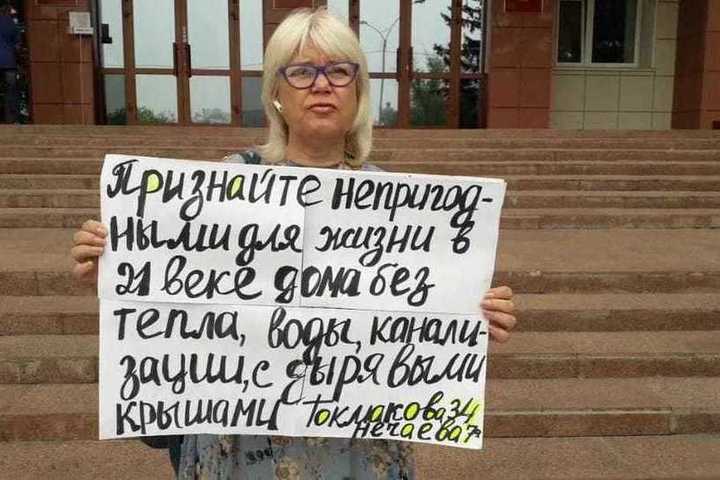 Признайте непригод-
ными для жизни в
21 веке дома без
тепла, воды, канали-
зации, с дырявыми
крышами Токмакова 34
Нечаева 7